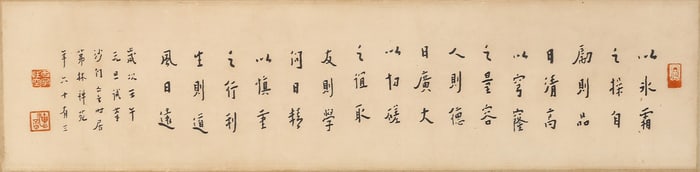 以冰霜
之操自
勵則品
日清高
以穹隆
之量容
人則德
日廣大
以切磋
之誼取
友則學
問日精
以慎重
之行利
生則道
風日遠
歲次壬午
元旦試筆
沙門 居
林禪苑
年六十有三